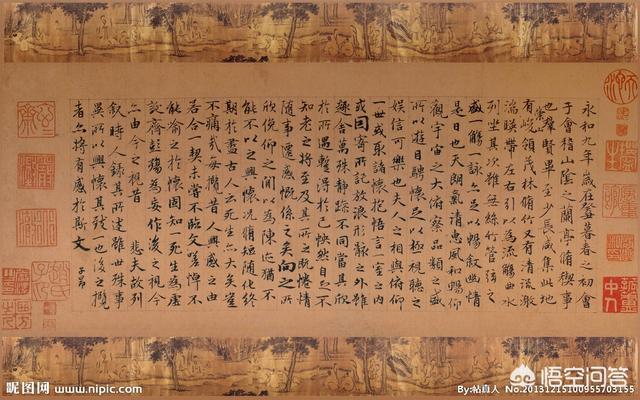 永和九年歲在癸丑暮春之初會
于會稽山陰之蘭亭脩稧事
也羣賢畢至少長咸集此地
有崇山峻領茂林脩竹又有清流激
湍暎帶左右引以為流觴曲水
列坐其次雖無絲竹管弦之
盛一觴一詠亦足以暢敘幽情
是日也天朗氣清惠風和暢仰
觀宇宙之大俯察品類之盛
所以遊目騁懷足以極視聽之
娛信可樂也夫人之相與俯仰
一世或取諸懷抱悟言一室之內
或因寄所託放浪形骸之外雖
趣舍萬殊靜躁不同當其欣
於所遇蹔得於己怏然自足不
知老之將至及其所之既惓情
隨事遷感慨係之矣向之所
欣俛仰之間以為陳迹猶不
能不以之興懷況脩短隨化終
期於盡古人云死生亦大矣豈
不痛哉每攬昔人興感之由
若合一契未嘗不臨文嗟悼不
能喻之於懷固知一死生為虛
誕齊彭殤為妄作後之視今
亦由今之視昔 悲夫故列
敘時人錄其所述雖世殊事
異所以興懷其致一也後之攬
者亦將有感於斯文
子昂
昵图网 www.nipic.com
By:帖真人 No.20131215100955703155
悟空问答